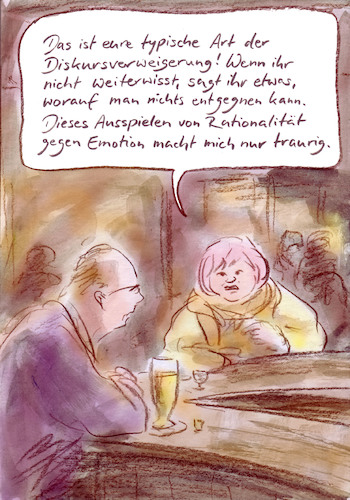 Das ist eure typische Art der
Diskursverweigerung! Wenn ihr
nicht weiterwisst, sagt ihr etwas,
worauf man nichts entgegnen kann.
Dieses Ausspielen von Rationalität
gegen Emotion macht mich nur traurig.